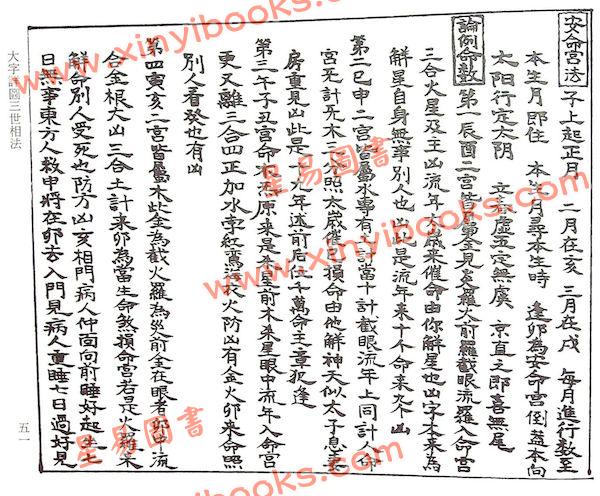 安命宮法 子上起正月 二月在亥 三月在戌 每月進行數至
本生月即住 本生月尋本生時 逢卯為安命宮倒蓋本向
太阳行定太阴 立 虛五定無虞 京直之郎喜無尾
論例命數 第一辰酉二宮皆屬金見 羅火前羅截眼流羅入命宮
三合火星及主凶流年 歲來催命由你解星也凶字木來為
解星自身無事別人也凶此是流年來十个命來九个凶
第二巳申二宮皆屬水專有 計當十計截眼流年上同計人命
宮死計死木三分照太歲催已損命由他解神大似太子息妻
房重見凶此是十 九年述前后任千萬命主章犯逢
第三午子丑宮命 原來是木 前木 星眼中流年入命宮
更又離三合四正加水孛紅鸞 火防凶有金火卯來命照
別人看發也有凶
第四寅亥二宮皆屬木此金為截火羅為災前全在眼者卯中流
合金根大凶三合土計來卯為當生命煞損命宮若是火羅木
解命別人受死也防方凶亥相門病人仲面向前睡好起生七
日無事東方人救申將在卯去入門見病人重睡七日過好見
大字 三世相法
五一
星易圖書
www.xinyibooks.com